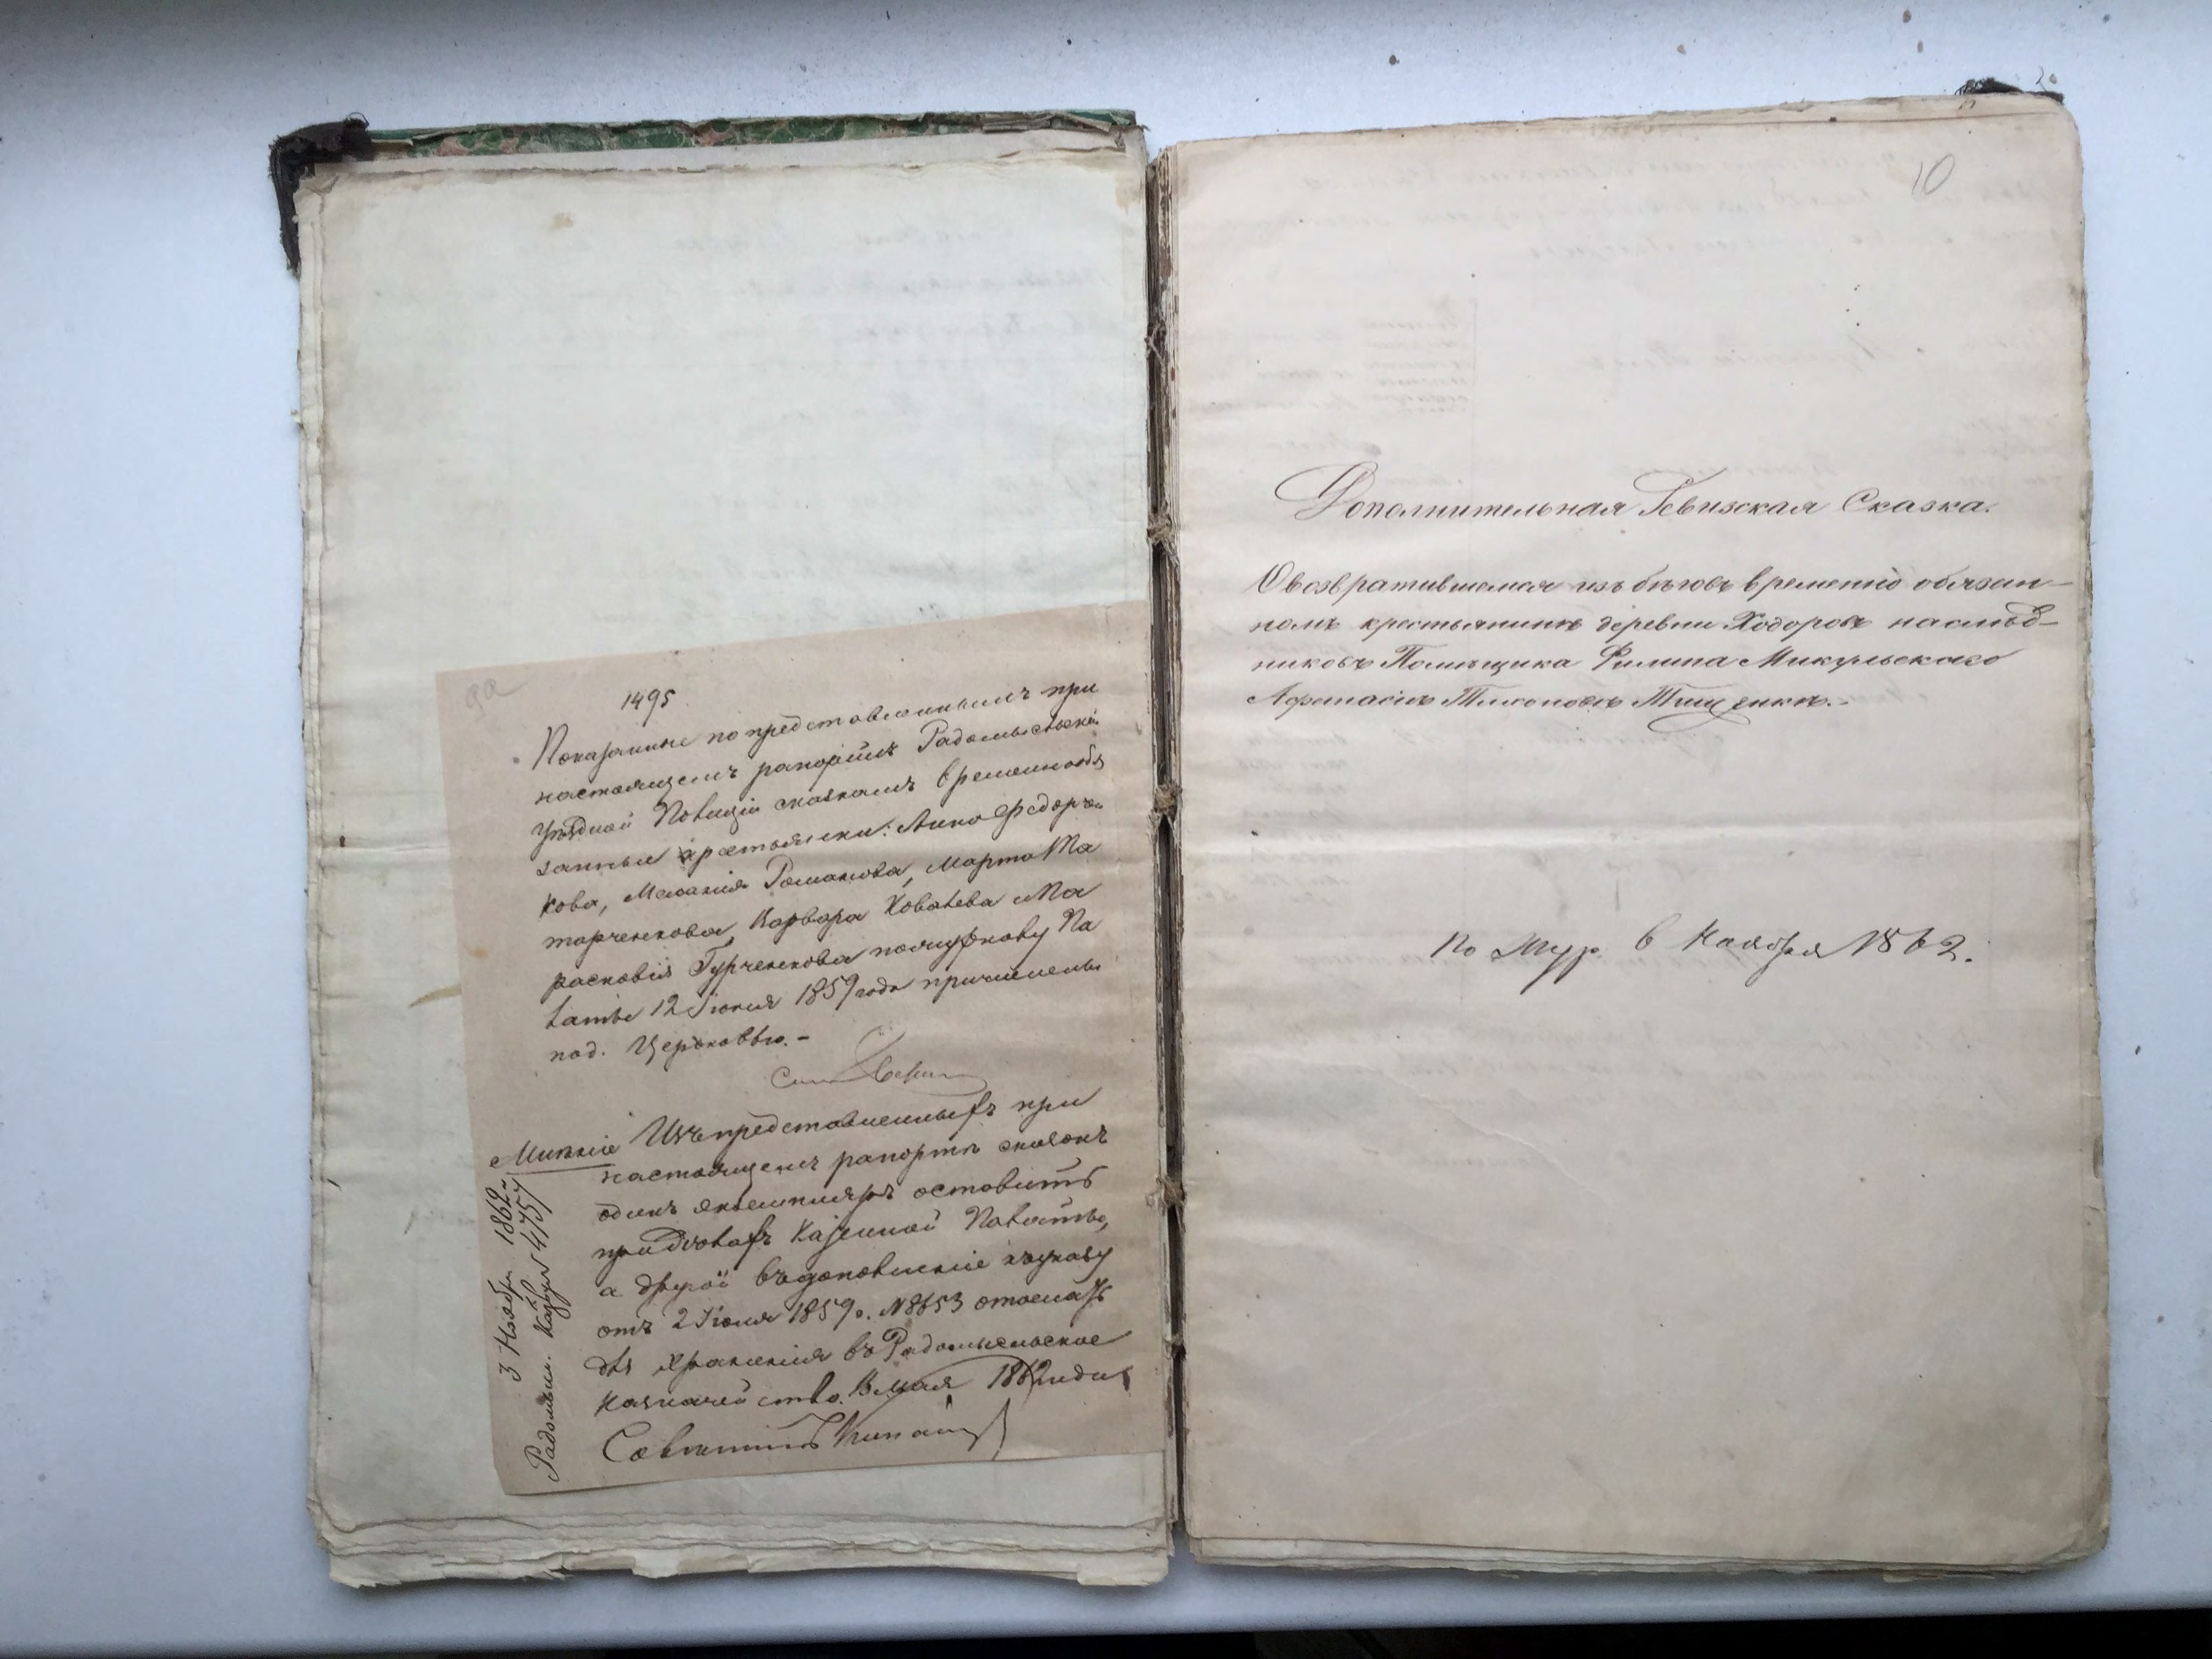 9а
1495
Показанные по представленнымъ при
настоящемъ рапортѣ Радомысльской
Уѣздной Полиціи сказкамъ временнообя
занныя крестьянки: Анна Федорчу
кова, Меланія Романова, Марта Ма
торченкова, Варвара Ковалева и Па
расковія Гурченкова по журналу Па
латы 12 Іюня 1859 года причислены
под. Церковью.-
Мнѣніе Изъ представленныхъ при
настоящемъ рапортѣ сказокъ
одинъ экземпляръ оставить
при дѣлахъ Казенной Палаты,
а другой въ дополненіе къ указу
отъ 2 Іюля 1859 г. № 8653 отослать
для храненія въ Радомысльское
Казначейство. мая 1862 года
Совѣтникъ
3 Ноября 1862
Радомысл. Казнач № 4757
10
Дополнительная Ревизская Сказка.
О возвратившемся изъ бѣговъ временно обязан-
номъ крестьянинѣ деревни Ходоровъ наслѣд-
никовъ Помѣщика Филипа Микульскаго
Афанасіѣ Тищенкѣ.-
По Жур. 6 Ноября 1862.